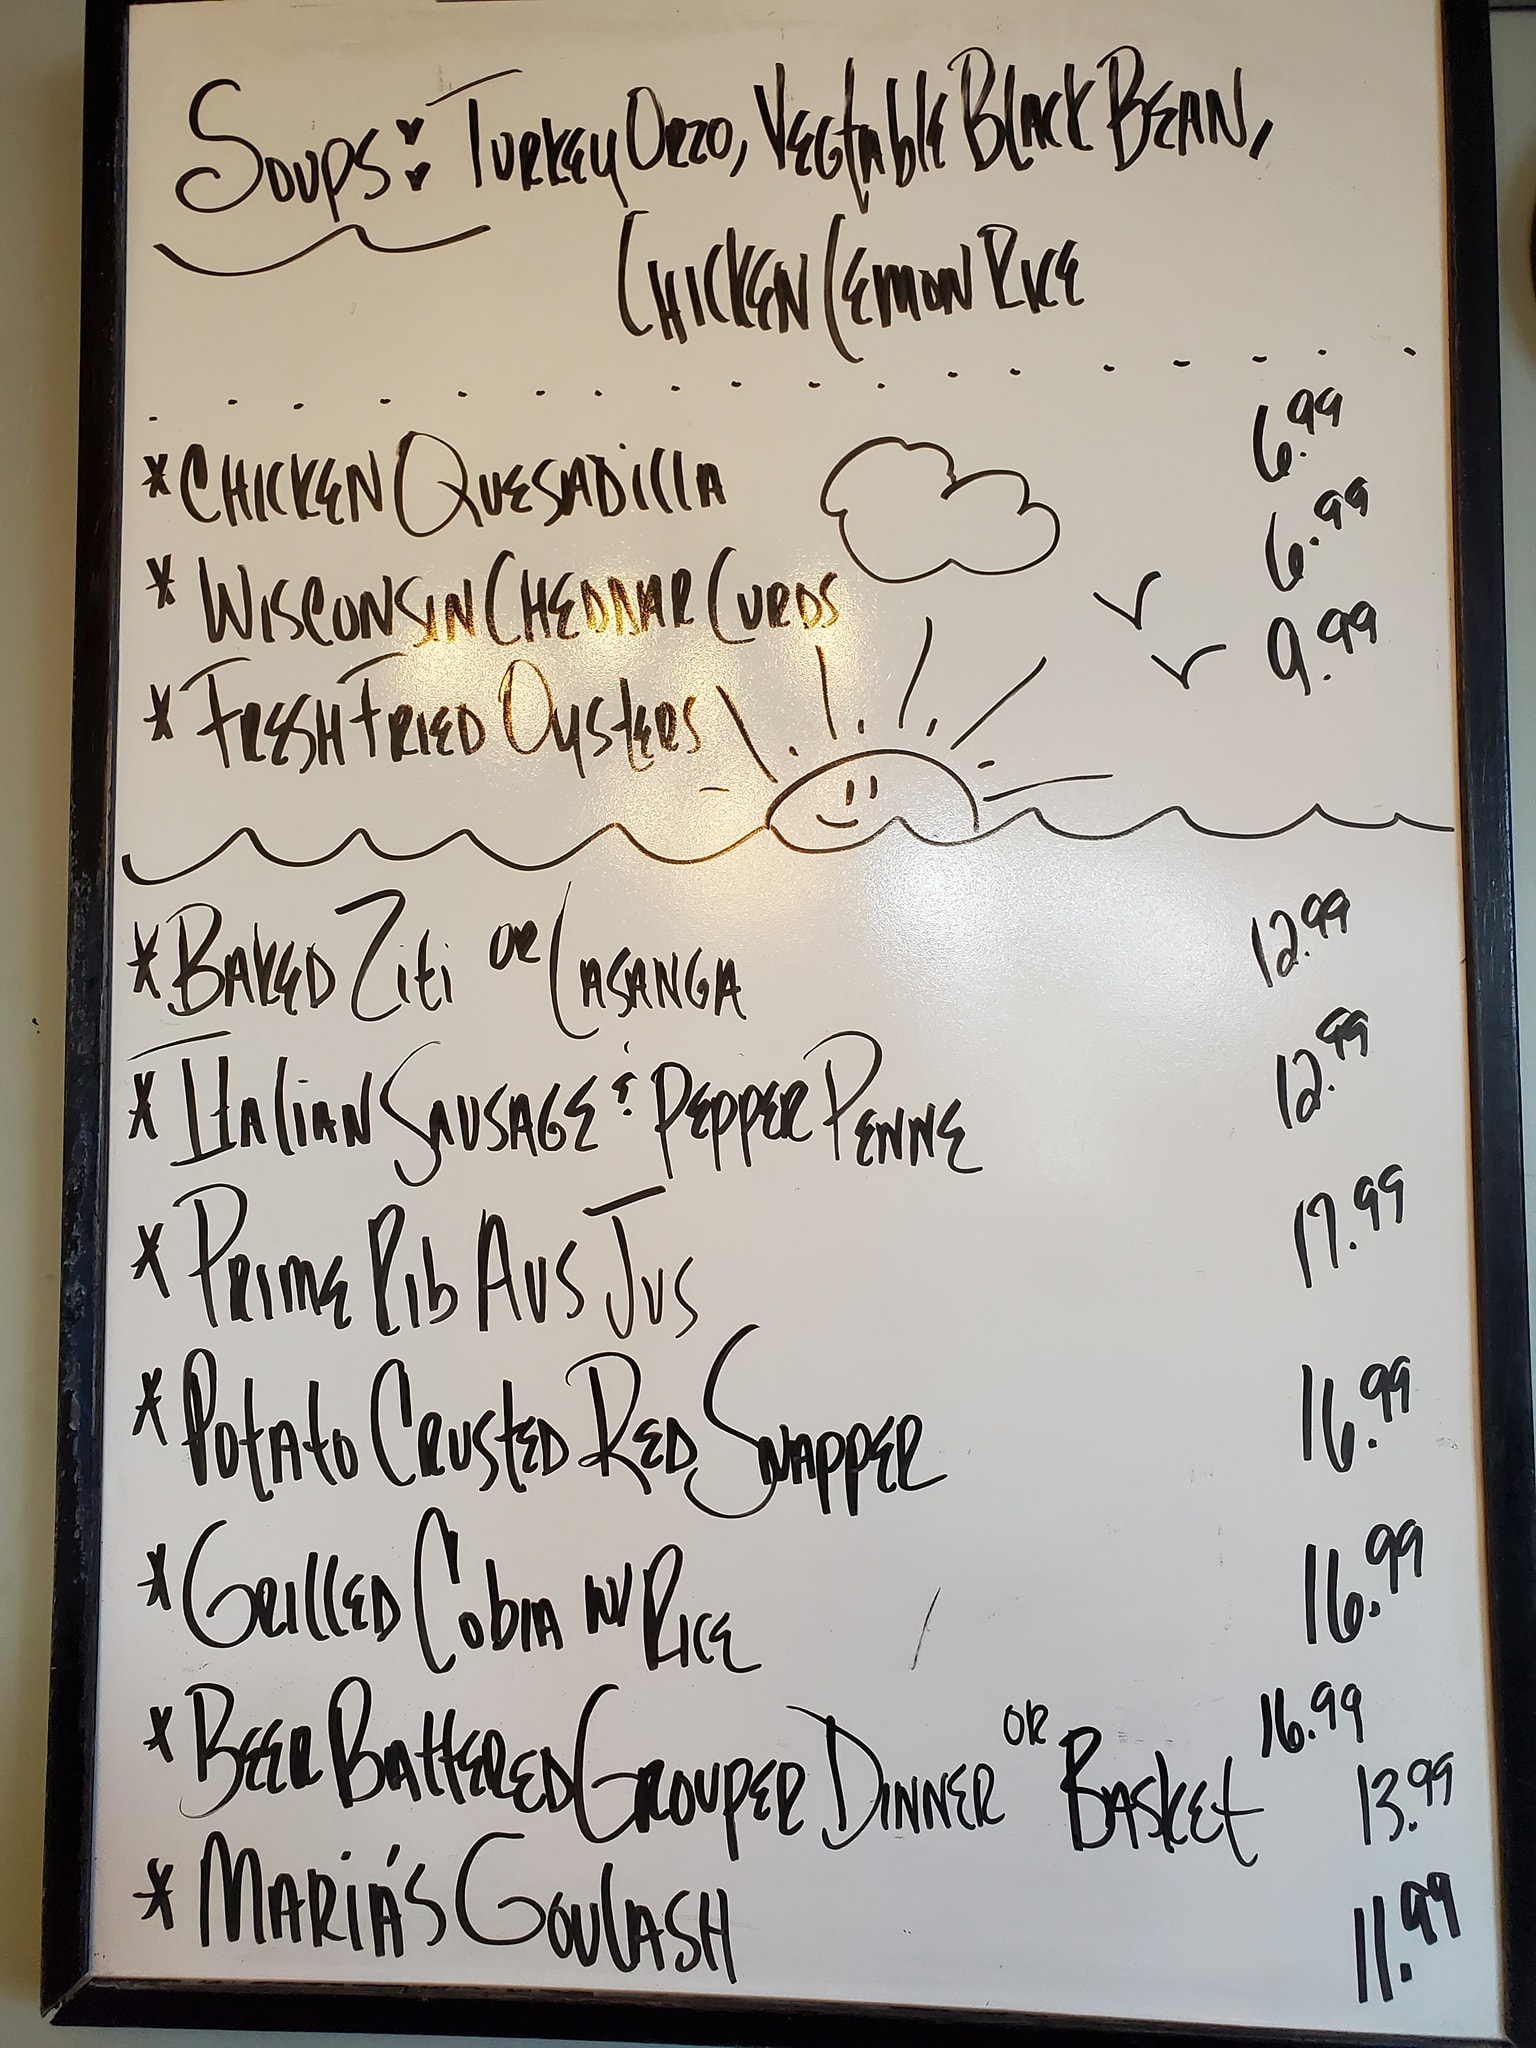 Soups: Turkey Orzo, Vegtable Black Bean,
Chicken Lemon Rice
* Chicken Quesadilla 6.99
* Wisconsin Cheddar Curds 6.99
* Fresh Fried Oysters 9.99
* Baked Ziti or Lasanga 12.99
* Italian Sausage & Pepper Penne 12.99
* Prime Rib Aus Jus 17.99
* Potato Crusted Red Snapper 16.99
* Grilled Cobia w/ Rice 16.99
* Beer Battered Grouper Dinner or Basket 16.99 13.99
* Maria's Goulash 11.99